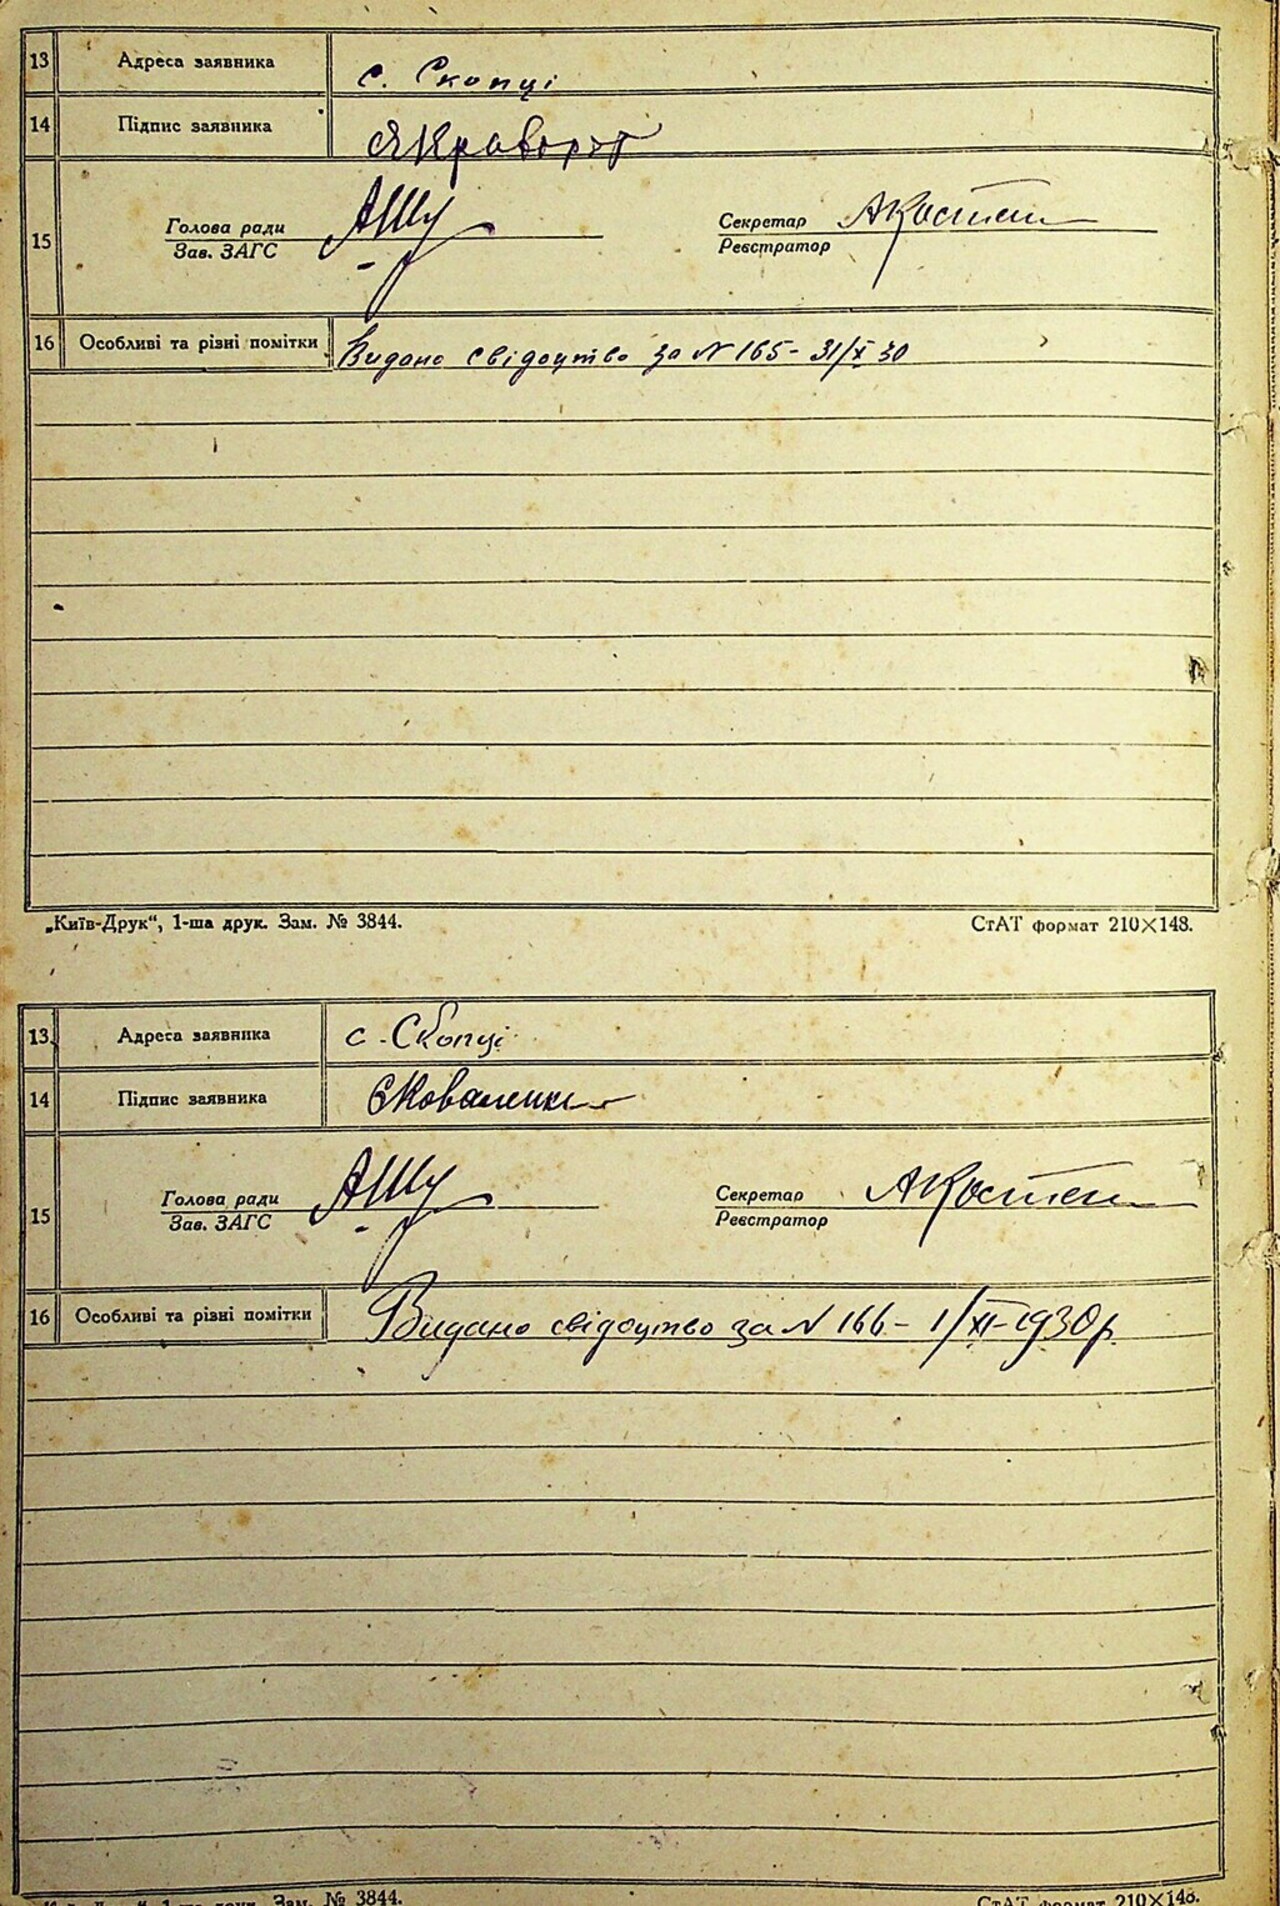 13 Адреса заявника с. Скопці
14 Підпис заявника
15 Голова ради Секретар АКостен
Зав. ЗАГС Реєстратор
16 Особливі та різні помітки Видано свідоцтво за N 165 - 31/X 30
„Київ-Друк“, 1-ша друк. Зам. № 3844. СтАТ формат 210×148.
13 Адреса заявника с. Скопці
14 Підпис заявника ЄКоваленко
15 Голова ради Секретар АКостен
Зав. ЗАГС Реєстратор
16 Особливі та різні помітки Видано свідоцтво за N 166 - 1/XI-1930р.
1-ша друк. Зам. № 3844. СтАТ формат 210×148.